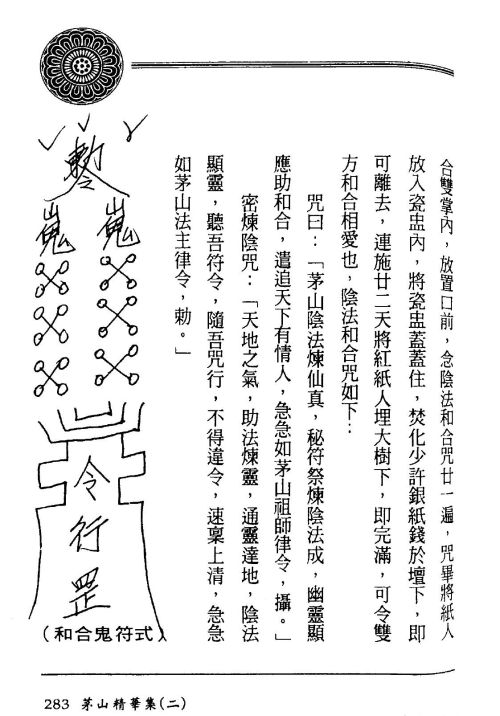 合雙掌內，放置口前，念陰法和合咒廿一遍，咒畢將紙人
放入瓷盅內，將瓷盅蓋蓋住，焚化少許銀紙錢於壇下，即
可離去，連施廿二天將紅紙人埋大樹下，即完滿，可令雙
方和合相愛也，陰法和合咒如下：
咒曰：「茅山陰法煉仙真，秘符祭煉陰法成，幽靈顯
應助和合，遣追天下有情人，急急如茅山祖師律令，攝。」
密煉陰咒：「天地之氣，助法煉靈，通靈達地，陰法
顯靈，聽吾符令，隨吾咒行，不得違令，速稟上清，急急
如茅山法主律令，勅。」
勅令
嵬 嵬
令
行
罡
（和合鬼符式）
283 茅山精華集(二)